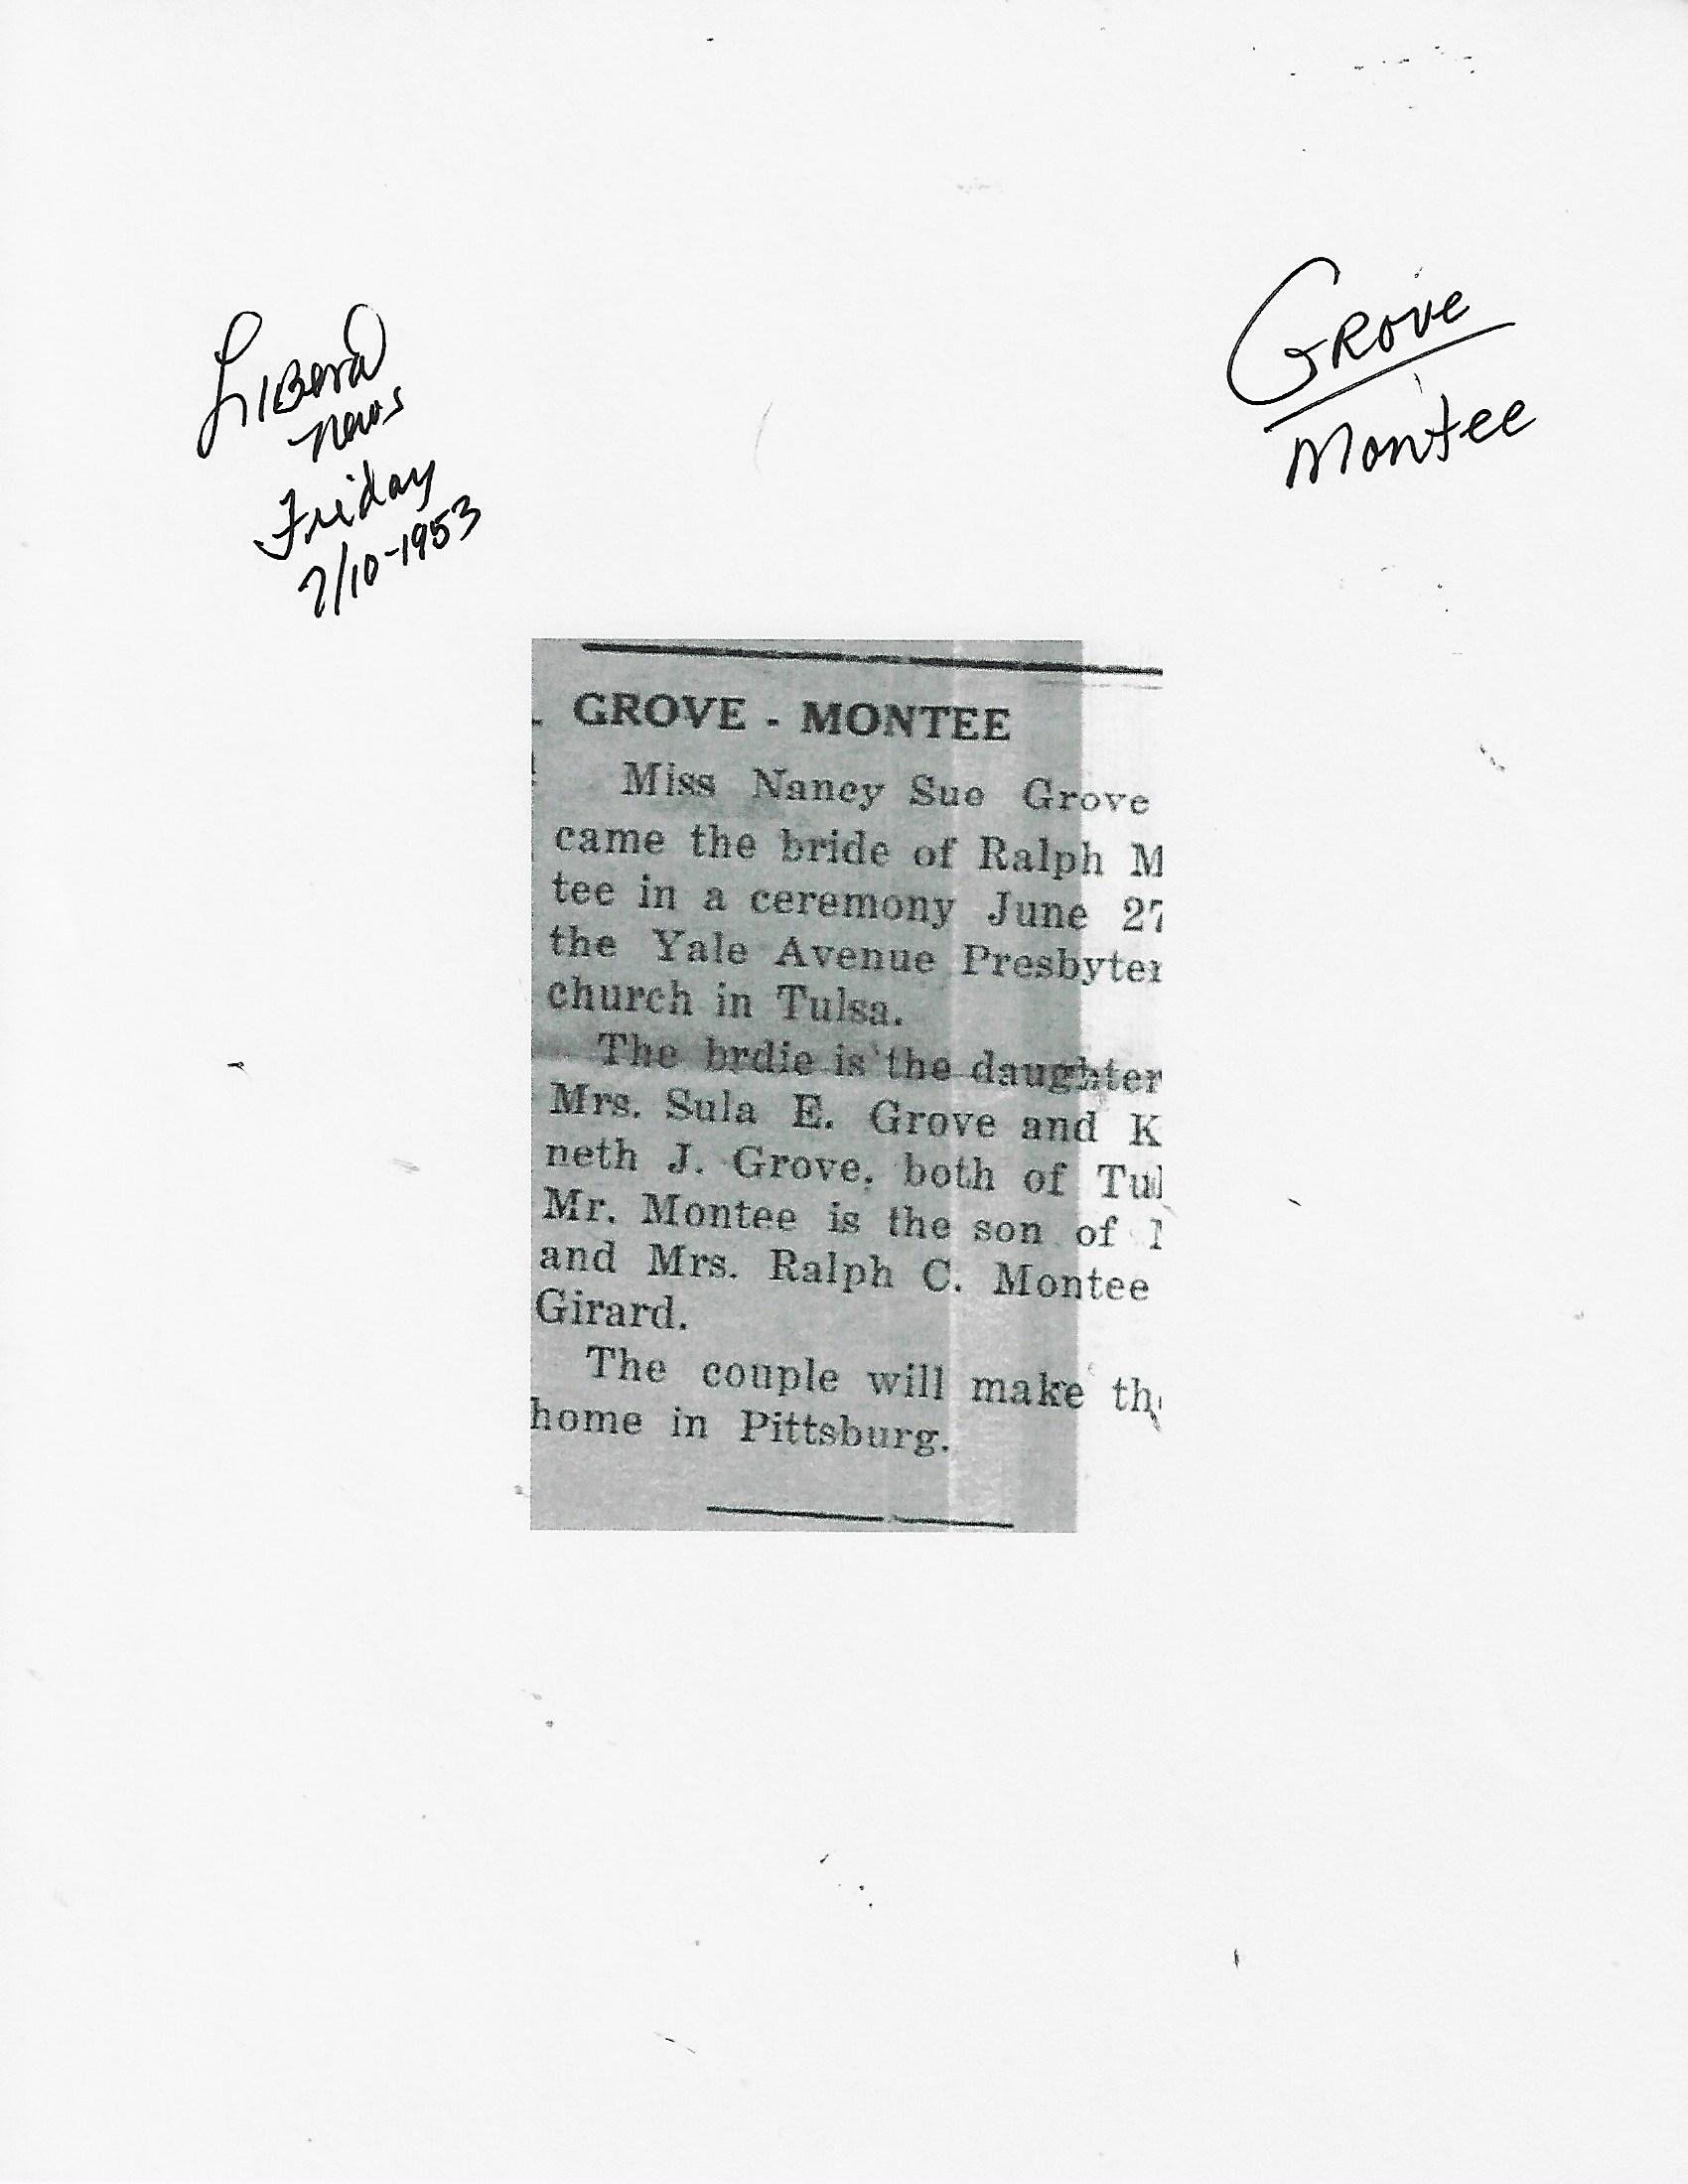 Liberal
News
Friday
7/10-1953
Grove
Montee
GROVE - MONTEE
Miss Nancy Sue Grove
came the bride of Ralph M
tee in a ceremony June 27
the Yale Avenue Presbyter
church in Tulsa.
The brdie is the daughter
Mrs. Sula E. Grove and K
neth J. Grove, both of Tul
Mr. Montee is the son of
and Mrs. Ralph C. Montee
Girard.
The couple will make the
home in Pittsburg.